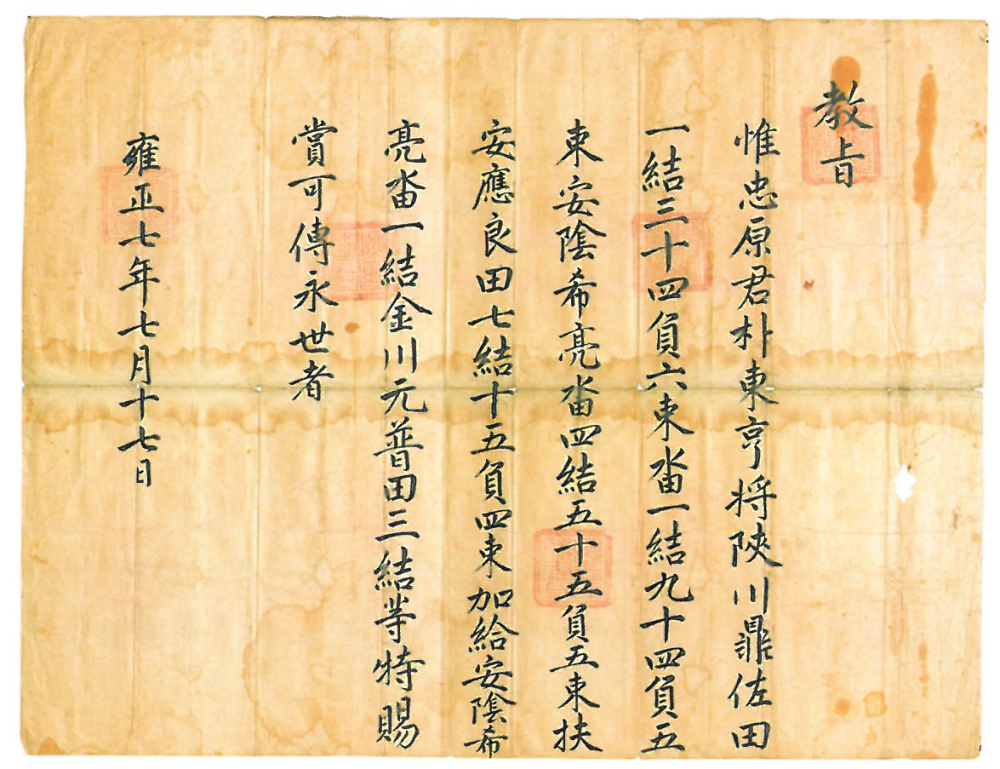 教旨
惟忠原君朴東亨將陜川㽒佐田
一結三十四負六束畓一結九十四負五
束安陰希亮畓四結五十五負五束扶
安應良田七結十五負四束加給安陰希
亮畓一結金川元普田三結等特賜
賞可傳永世者
雍正七年七月十七日